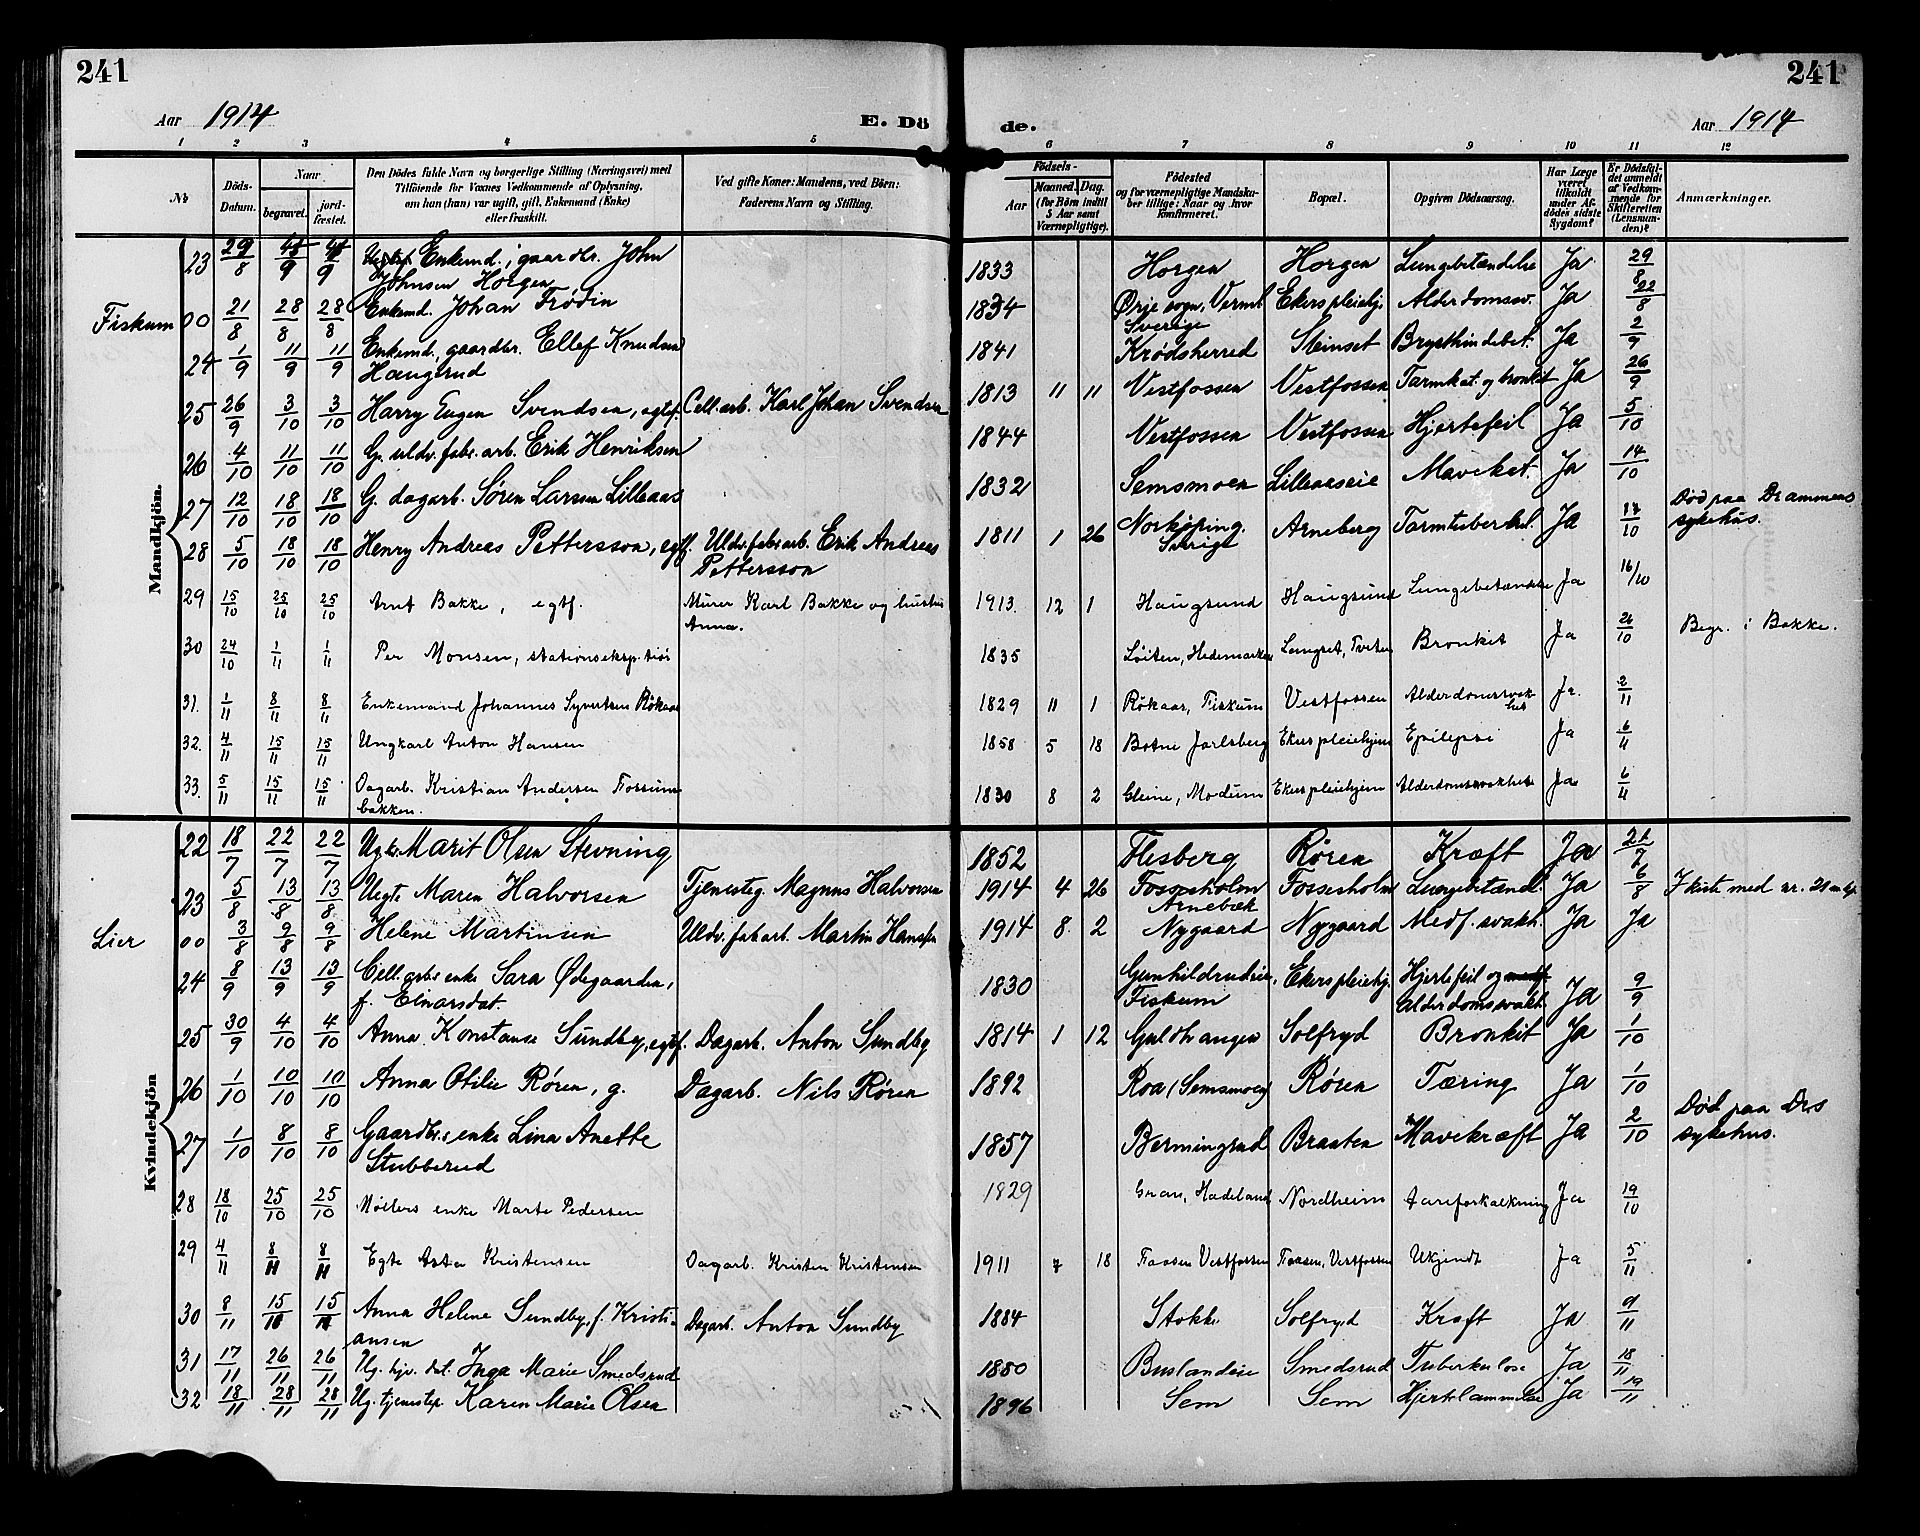 241
241
Aar 1914
E. Dö
de.
Aar 1914
1 2 3 4 5 6 7 8 9 10 11 12
№
Döds-Datum.
Naar
begravet.
jord-fæstet.
Den Dödes fulde Navn og borgerlige Stilling (Næringsvei) med
Tilföiende for Voxnes Vedkommende af Oplysning,
om han (hun) var ugift, gift, Enkemand (Enke)
eller fraskilt.
Ved gifte Koner: Mandens, ved Börn:
Faderens Navn og Stilling.
Födsels-
Aar
Maaned. Dag.
(for Börn indtil
5 Aar samt
Værnepligtige).
Födested
og for værnepligtige Mandska-
ber tillige: Naar og hvor
konfirmeret.
Bopæl.
Opgiven Dödsaarsag.
Har Læge
været
tilkaldt
under Af-
dödes sidste
Sygdom?
Er Dödsfal-
det anmeldt
af Vedkom-
mende for
Skifteretten
(Lensman-
den)?
Anmærkninger.
Mandkjön.
23 29/8 /9 /9 Enkemd., gaardbr. John Johnsen Horgen 1833 Horgen Horgen Lungebetændelse Ja 29/8
Fiskum 00 21/8 28/8 28/8 Enkemd. Johan Frødin 1834 Ørje sogn, Verml. Sverige Ekers pleiehj. Alderdomssv. Ja 22/8
24 1/9 11/9 11/9 Enkemd., gaardbr. Ellef Knudsen Haugsrud 1841 Krødsherred Steinset Brysthindebet. Ja 2/9
25 26/9 3/10 3/10 Harry Eugen Svendsen, egtef. Cell.arb. Karl Johan Svendsen 1813 11 11 Vestfossen Vestfossen Tarmkat. og bronkit Ja 26/9
26 4/10 11/10 11/10 G. uldv. fabr. arb. Erik Henriksen 1844 Vestfossen Vestfossen Hjertefeil Ja 5/10
27 12/10 18/10 18/10 G. dagarb. Søren Larsen Lilleaas 1832 Semsmoen Lilleaaseie Mavekat. Ja 14/10
28 5/10 18/10 18/10 Henry Andreas Pettersson, egtf. Uldv. fabr. arb. Erik Andreas Pettersson 1811 1 26 Norkøping. Sverige Arneberg Tarmtuberkul. Ja 17/10 Død paa Drammens sykehus.
29 15/10 25/10 25/10 Arnt Bakke, egtf. Murer Karl Bakke og hustru Anna. 1913. 12 1 Haugsund Haugsund Lungebetændelse Ja 16/10
30 24/10 1/11 1/11 Per Monsen, stationseksp. 1835 Løiten, Hedemarken Bronkit Ja 26/10 Begr. i Bakke.
31. 1/11 8/11 8/11 Enkemand Johannes Syvertsen Røkaas 1829 11 1 Røkaas, Fiskum Vestfossen Alderdomssvakhet Ja. 2/11
32. 4/11 15/11 15/11 Ungkarl Anton Hansen 1858 5 18 Botne Jarlsberg Ekers pleiehjem Epilepsi Ja 6/11
33. 5/11 15/11 15/11 Dagarb. Kristian Andersen Fossumbakken. 1830 8 2 Gleine, Modum Ekers pleiehjem Alderdomssvakhet Ja 6/11
Kvindekjön
22 18/7 22/7 22/7 Ugte Marit Olsen Stevning 1852 Flesberg Røren Kræft Ja 21/7
23 5/8 13/8 13/8 Uegte Maren Halvorsen Tjenesteg. Magnus Halvorsen 1914 4 26 Fossesholm Fossesholm Lungebetændl. Ja 6/8 I kiste med nr. 21 m.kj.
Lier 00 3/8 9/8 9/8 Helene Martinsen Uldv. fab.arb. Martin Hansen 1914 8. 2 Arnebæk Nygaard Nygaard Medf. svakh. Ja Ja
24 8/9 13/9 13/9 Cell.arb.s enke Sara Ødegaarden, f. Einarsdat. 1830 Gunhildrudeie, Fiskum Ekers pleiehj. Hjertefeil og Alderdomssvakh. Ja 9/9
25 30/9 4/10 4/10 Anna Konstanse Sundby, egtf. Dagarb. Anton Sundby 1814 1 12 Guldhaugen Solfryd Bronkit Ja 1/10
26 1/10 10/10 10/10 Anna Otilie Røren, g. Dagarb. Nils Røren 1892 Roa (Semsmoen) Røren Tæring Ja 1/10
27 1/10 8/10 8/10 Gaardbr.s enke Lina Anette Stubberud 1857 Bermingrud Braaten Mavekræft Ja 2/10 Død paa Drs sykehus.
28 18/10 25/10 25/10 Møllers enke Marte Pedersen 1829 Gran, Hadeland Nordheim Aareforkalkning Ja 19/10
29 4/11 8/11 8/11 Egte Asta Kristensen Dagarb. Kristen Kristensen 1911 7 18 Faasen Vestfossen Faasen, Vestfossen Ukjendt Ja 5/11
30 8/11 15/11 15/11 Anna Helene Sundby, f. Kristiansen Dagarb. Anton Sundby 1884 Stokke Solfryd Kræft Ja 9/11
31 17/11 26/11 26/11 Ug. hjv. dat. Inga Marie Smedsrud 1880 Buslandeie Smedsrud Tuberkulose Ja 18/11
32 18/11 28/11 28/11 Ug. tjenestep. Karen Marie Olsen 1896 Sem Sem Hjertelammelse Ja 19/11